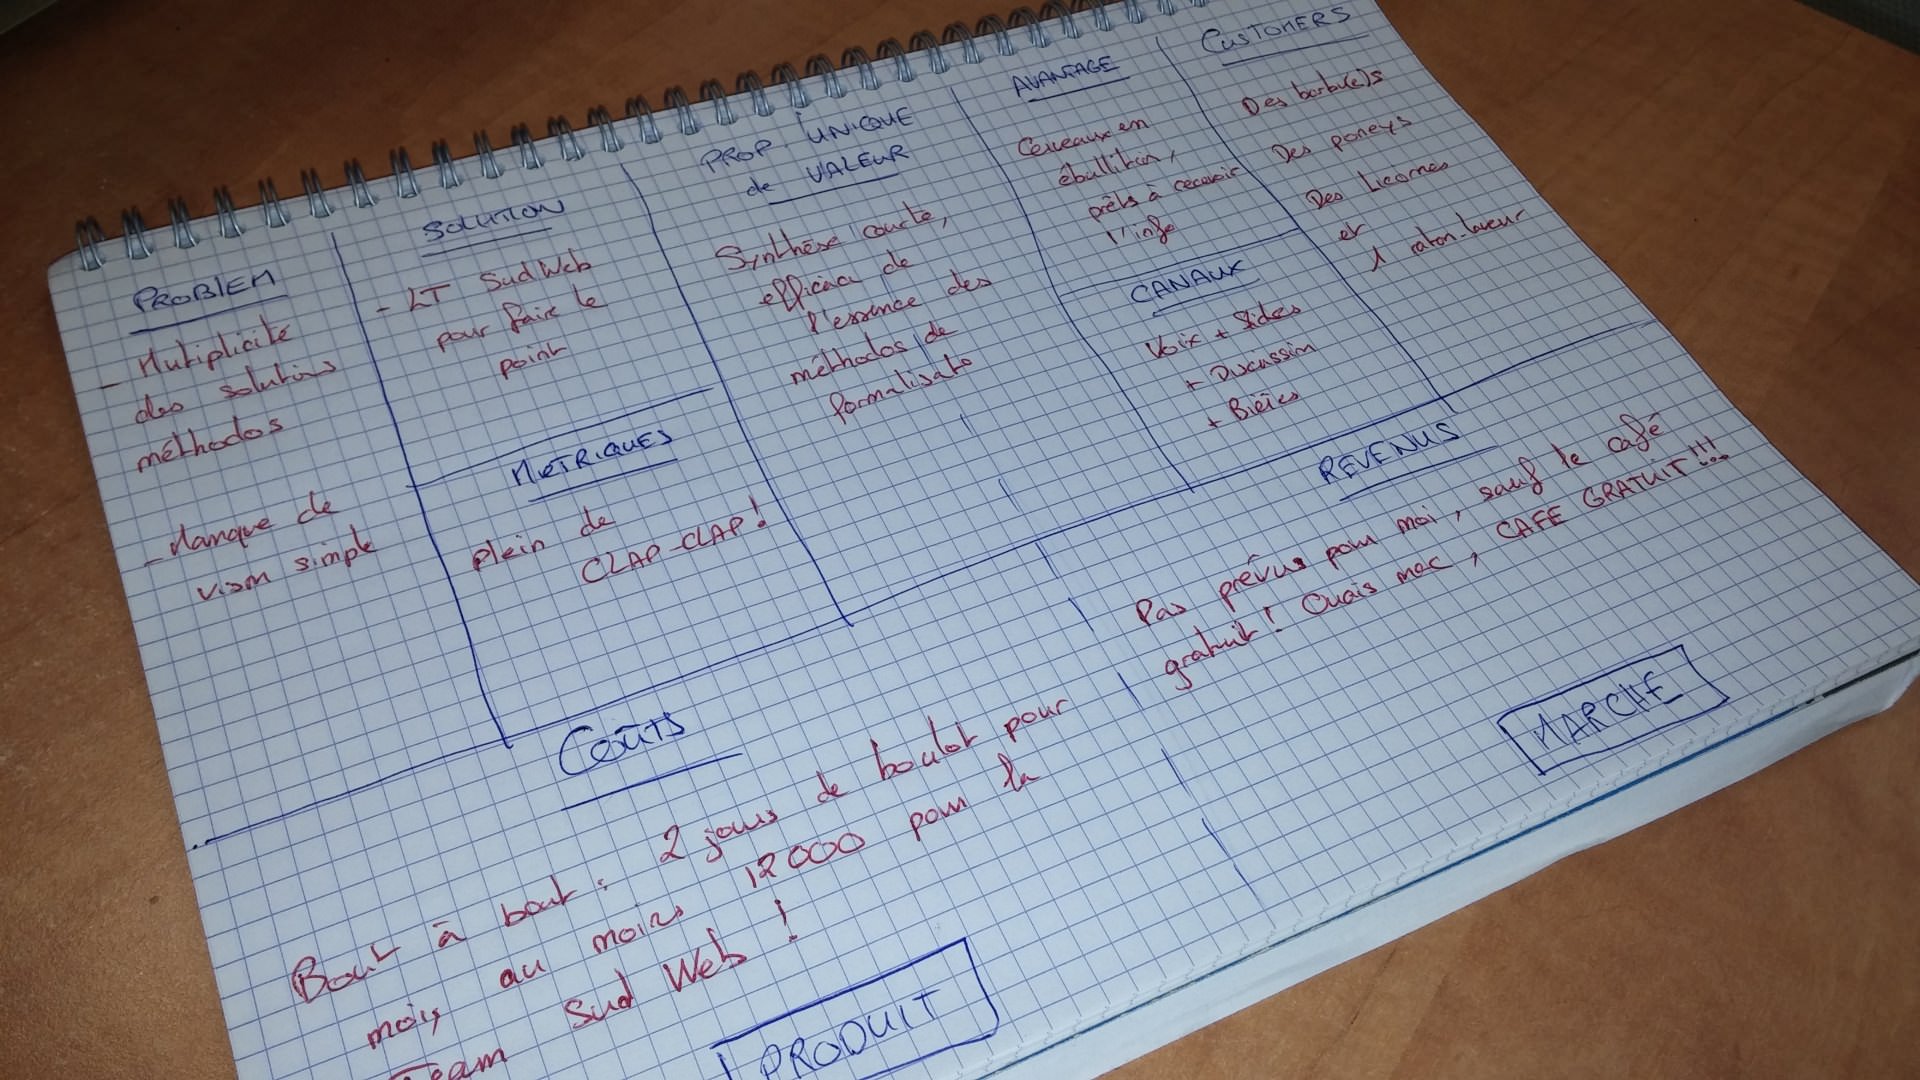 PROBLEM
- Multiplicité
des solutions
méthodos
- Manque de
vision simple
SOLUTION
- LT SudWeb
pour faire le
point
MéTRIQUES
plein de
CLAP-CLAP!
PROP. UNIQUE
de VALEUR
Synthèse courte,
efficace de
l'essence des
méthodos de
formalisato
AVANTAGE
Cerveaux en
ébullition,
prêts à recevoir
l'info
CANAUX
Voix + Slides
+ Discussion
+ Bières
CUSTOMERS
Des barbu(e)s
Des poneys
Des Licornes
et
1 raton-laveur
COÛTS
Bout à bout : 2 jours de boulot pour
moi, au moins 12000 pour la
Team Sud Web !
PRODUIT
REVENUS
Pas prévus pour moi, sauf le café
gratuit! Ouais mec, CAFE GRATUIT!!!
MARCHE